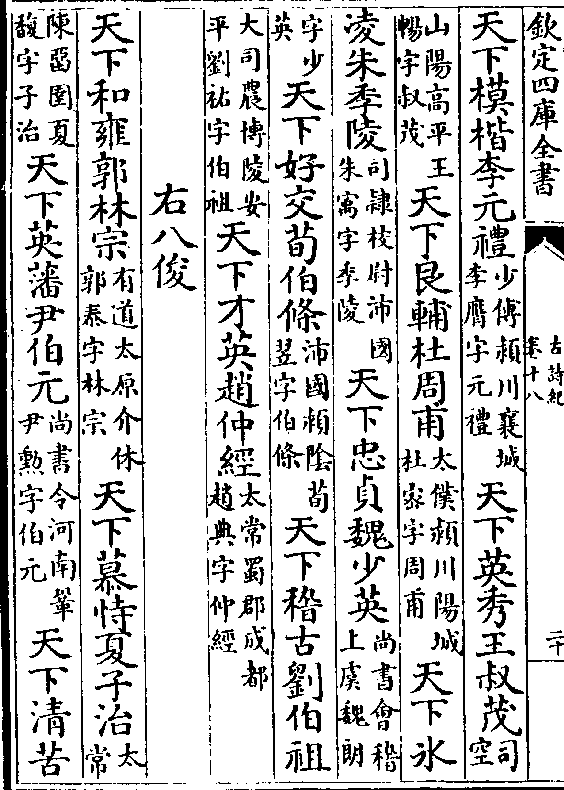 欽定四庫全書
古詩紀
卷十八
二十
天下模楷李元禮少傅潁川襄城李膺字元禮天下英秀王叔茂司空
山陽高平王暢字叔茂天下良輔杜周甫太僕潁川陽城杜宻字周甫天下氷
凌朱季陵司隸校尉沛國朱寓字季陵天下忠貞魏少英尚書會稽上虞魏朗
字少英天下好交荀伯條沛國潁陰荀翌字伯條天下稽古劉伯祖
大司農博陵安平劉祐字伯祖天下才英趙仲經太常蜀郡成都趙典字仲經
右八俊
天下和雍郭林宗有道太原介休郭泰字林宗天下慕恃夏子治太常
陳畱圉夏馥字子治天下英藩尹伯元尚書令河南鞏尹勲字伯元天下清苦